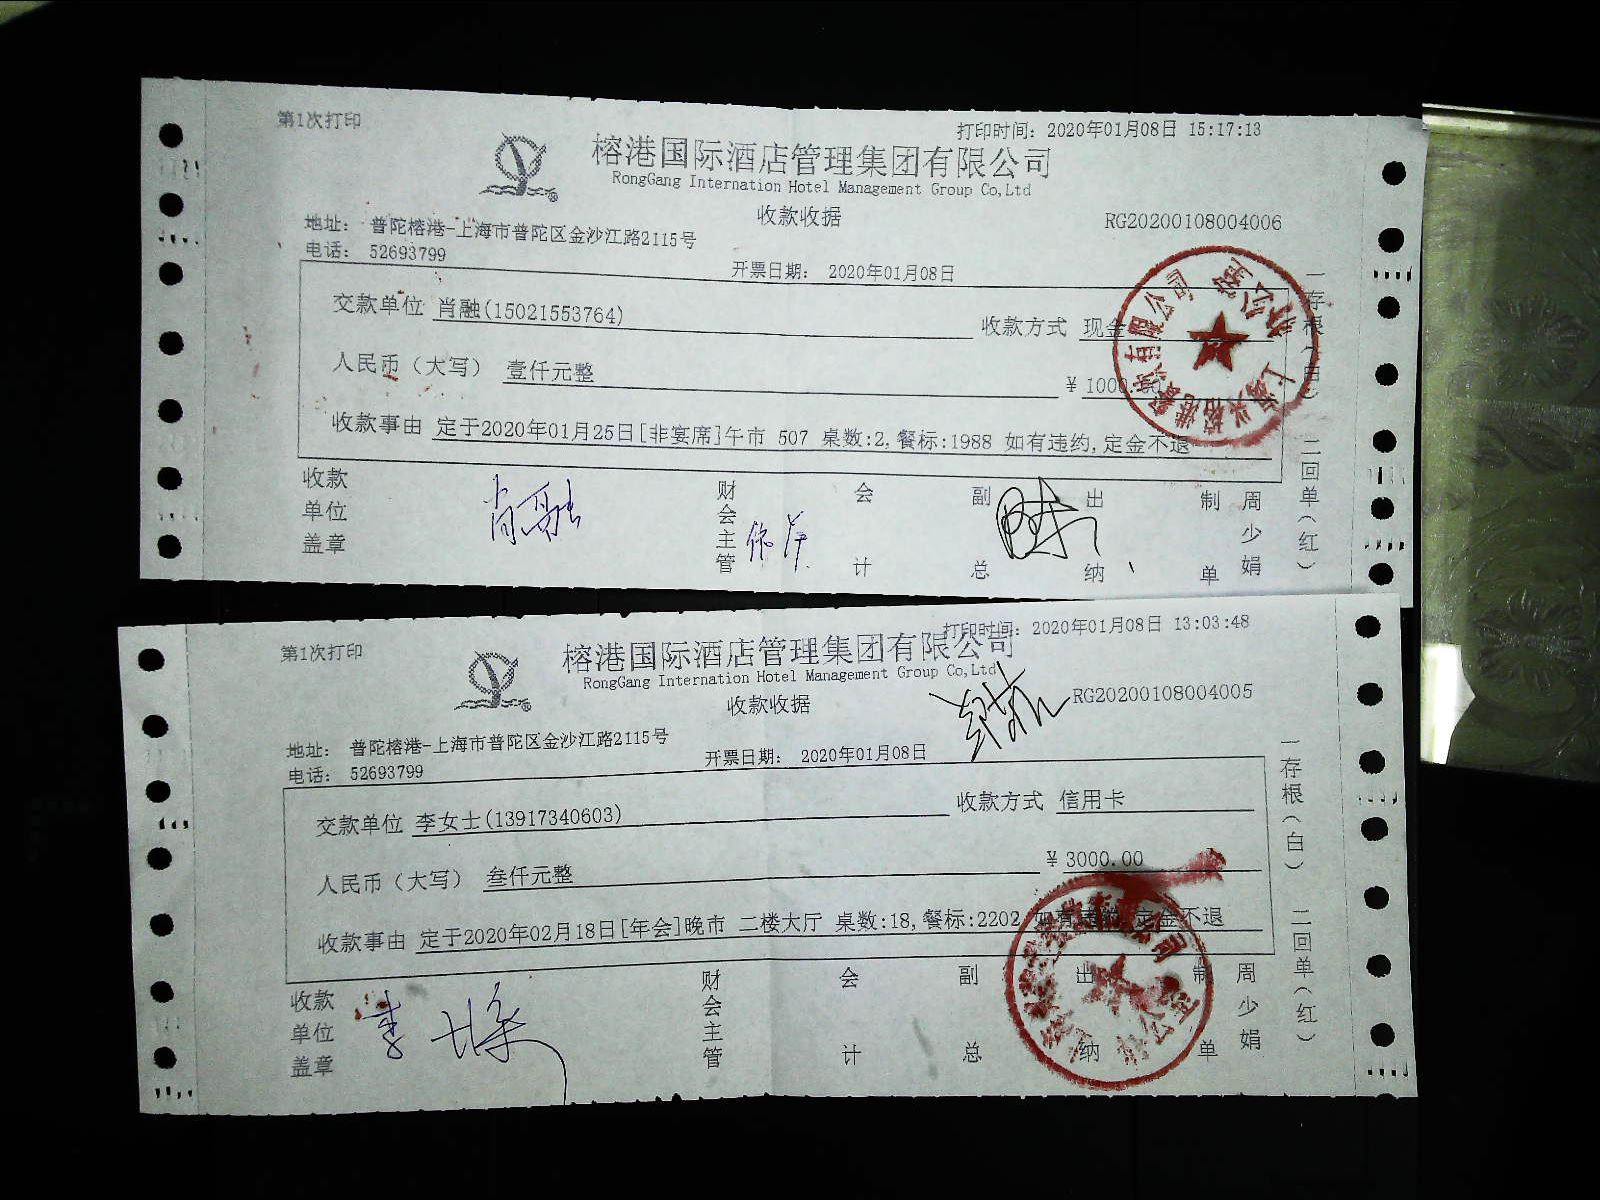 第1次打印
打印时间: 2020年01月08日 15:17:13
榕港国际酒店管理集团有限公司
RongGang Internation Hotel Management Group Co,Ltd
收款收据
RG20200108004006
地址: 普陀榕港-上海市普陀区金沙江路2115号
电话: 52693799
开票日期: 2020年01月08日
交款单位 肖融(15021553764) 收款方式 现金
人民币(大写) 壹仟元整 ¥ 1000.00
收款事由 定于2020年01月25日[非宴席]午市 507 桌数:2,餐标:1988 如有违约,定金不退
收款单位盖章 肖融 财会主管 会计 副总 出纳 制单 周少娟
一存根(白) 二回单(红)
办公室
第1次打印
打印时间: 2020年01月08日 13:03:48
榕港国际酒店管理集团有限公司
RongGang Internation Hotel Management Group Co,Ltd
收款收据
RG20200108004005
地址: 普陀榕港-上海市普陀区金沙江路2115号
电话: 52693799
开票日期: 2020年01月08日
交款单位 李女士(13917340603) 收款方式 信用卡
人民币(大写) 叁仟元整 ¥ 3000.00
收款事由 定于2020年02月18日[年会]晚市 二楼大厅 桌数:18,餐标:2202 如有违约,定金不退
收款单位盖章 财会主管 会计 副总 出纳 制单 周少娟
一存根(白) 二回单(红)